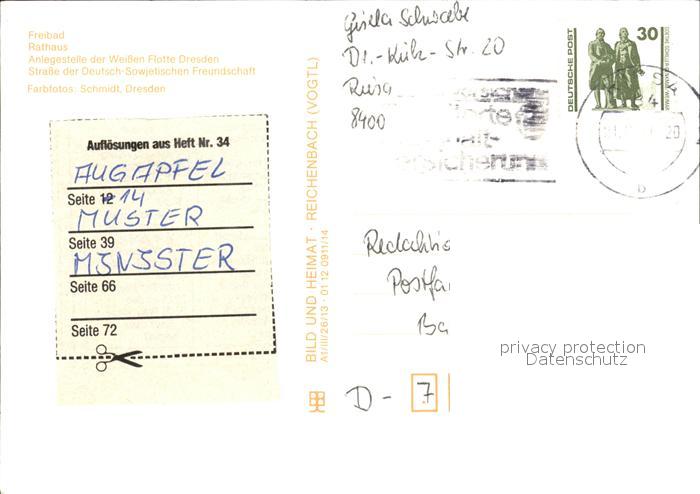 Freibad
Rathaus
Anlegestelle der Weißen Flotte Dresden
Straße der Deutsch-Sowjetischen Freundschaft
Farbfotos: Schmidt, Dresden
Auflösungen aus Heft Nr. 34
AUGAPFEL
Seite 12 14
MUSTER
Seite 39
MINISTER
Seite 66
Seite 72
BILD UND HEIMAT · REICHENBACH (VOGTL)
A1/III/26/13 · 01 12 0911/14
Gisela Schwabe
Dr.-Külz-Str. 20
Riesa
8400
DEUTSCHE POST
30
20
b
Redaktio
Postfa
Ba
D - 7
privacy protection
Datenschutz